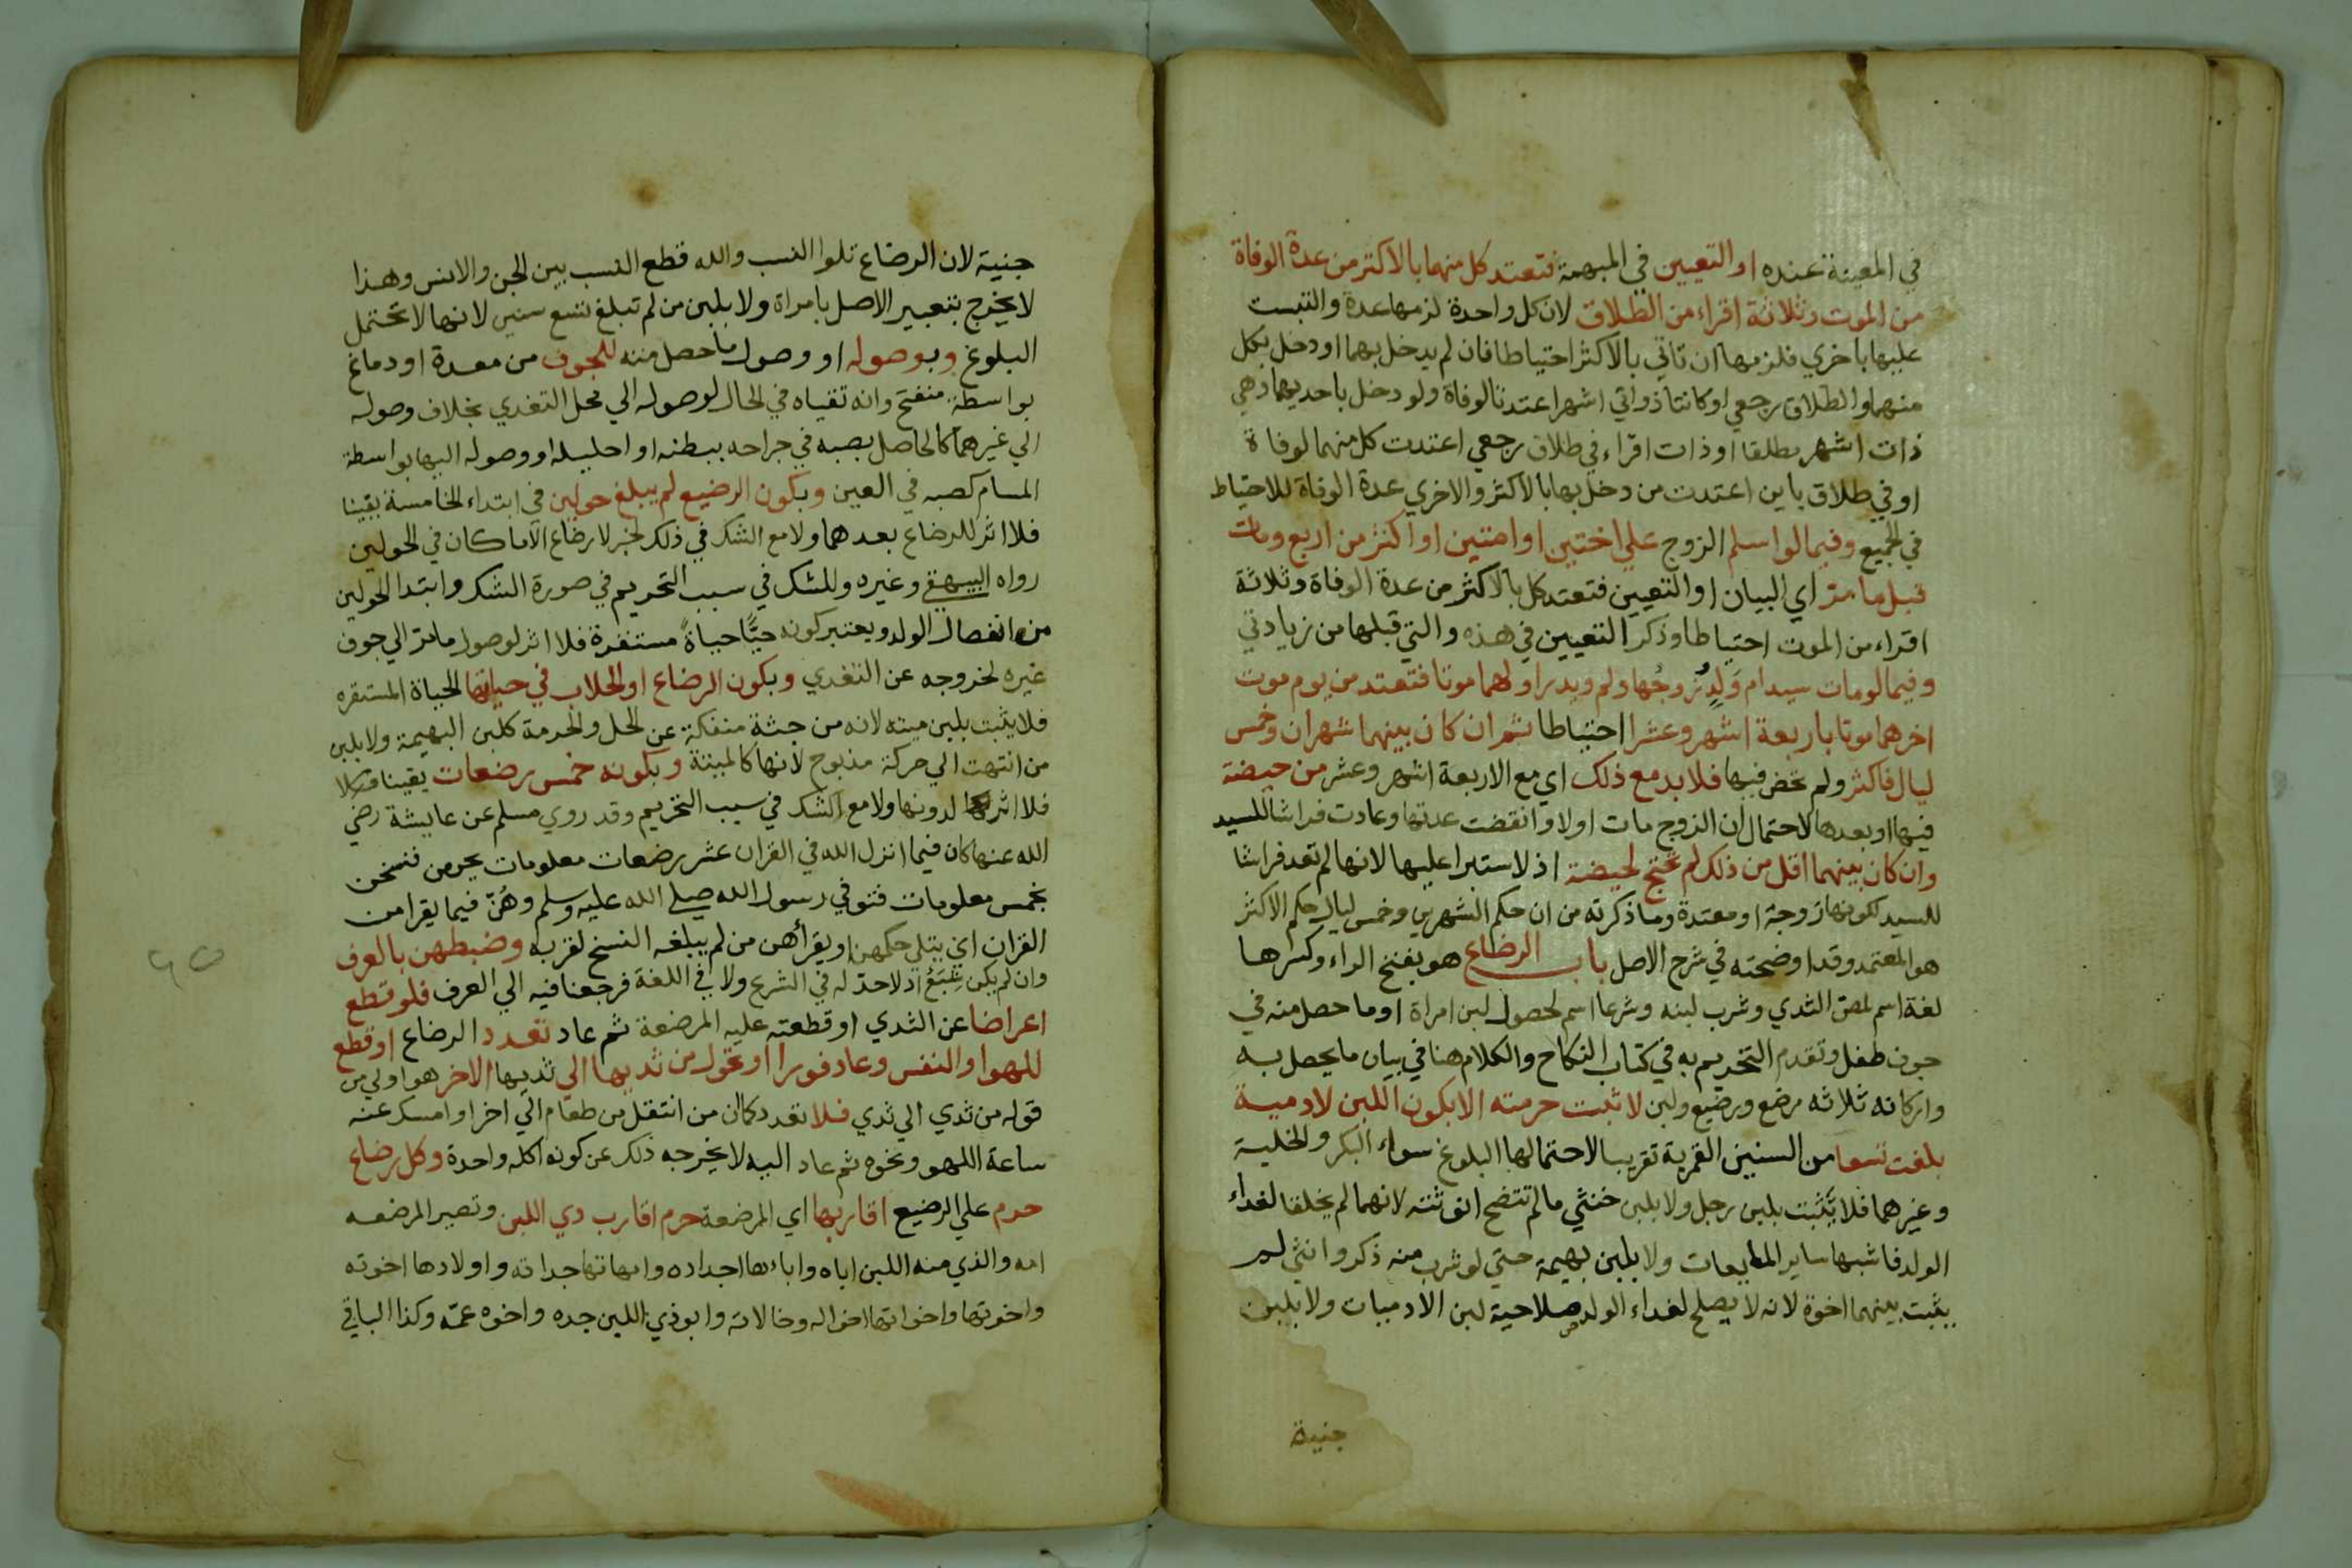 في المعينة عنده او التعيين في المبهمة فتعتد كل منهما بالاكثر من عدة الوفاة
من الموت وثلاثة اقراء من الطلاق لان كل واحدة لزمها عدة والتبست
عليها باخري فلزمها ان تاتي بالاكثر احتياطا فان لم يدخل بهما او دخل بكل
منهما والطلاق رجعي او كانتا ذواتي اشهر اعتدتا لوفاة ولو دخل باحديهما وهي
ذات اشهر مطلقا او ذات اقراء في طلاق رجعي اعتدت كل منهما لوفاة
او في طلاق باين اعتدت من دخل بها بالاكثر والاخري عدة الوفاة للاحتياط
في الجميع وفيما لو اسلم الزوج علي اختين او امتين او اكثر من اربع ومات
قبل ما مر اي البيان او التعيين فتعتد كل بالاكثر من عدة الوفاة وثلاثة
اقراء من الموت احتياطا وذكر التعيين في هذه والتي قبلها من زيادتي
وفيما لو مات سيد ام ولد زوجها ولم ويدر اولهما موتا فتعتد من يوم موت
اخرهما موتا باربعة اشهر وعشرا احتياطا ثم ان كان بينهما شهران وخمس
ليال فاكثر ولم تحض فيها فلا بد مع ذلك اي مع الاربعة اشهر وعشر من حيضة
فيها او بعدها لاحتمال ان الزوج مات اولا وانقضت عدتها وعادت فراشا للسيد
وان كان بينهما اقل من ذلك لم تحتج لحيضة اذ لا استبرا عليها لانها لم تعد فراشا
للسيد لكونها زوجة او معتدة وما ذكرته من ان حكم الشهرين وخمس ليال حكم الاكثر
هو المعتمد وقد اوضحته في شرح الاصل باب الرضاع هو بفتح الراء وكسرها
لغة اسم لمص الثدي وشرب لبنه وشرعا اسم لحصول لبن امراة او ما حصل منه في
جوف طفل وتقدم التحريم به في كتاب النكاح والكلام هنا في بيان ما يحصل به
واركانه ثلاثه مرضع ورضيع ولبن لا تثبت حرمته الا بكون اللبن لادمية
بلغت تسعا من السنين القمرية تقريبا لاحتمالها البلوغ سواء البكر والخلية
وغيرهما فلا يثبت بلبن رجل ولا بلبن خنثي ما لم تتضح انوثته لانهما لم يخلقا لغداء
الولد فاشبها ساير المايعات ولا بلبن بهيمة حتي لو شرب منه ذكر وانثي لم
يثبت بينهما اخوة لانه لا يصلح لغداء الولد صلاحية لبن الادميات ولا بلبن
جنية
جنية لان الرضاع تلوا النسب والله قطع النسب بين الجن والانس وهذا
لا يخرج بتعبير الاصل بامراة ولا بلبن من لم تبلغ تسع سنين لانها لا تحتمل
البلوغ وبوصوله او وصول ما حصل منه للجوف من معدة او دماغ
بواسطة منفتح وانه تقياه في الحال لوصوله الي محل التغدي بخلاف وصوله
الي غيرهما كالحاصل بصبه في جراحه ببطنه او احليله او وصوله اليها بواسطة
المسام كصبه في العين وبكون الرضيع لم يبلغ حولين في ابتداء الخامسة يقينا
فلا اثر للرضاع بعدهما ولا مع الشك في ذلك لخبر لا رضاع الا ما كان في الحولين
رواه البيهقي وغيره وللشك في سبب التحريم في صورة الشك وابتدا الحولين
من انفصال الولد ويعتبر كونه حيًّا حياةً مستقرة فلا اثر لوصول ما مر الي جوف
غيره لخروجه عن التغدي وبكون الرضاع او الحلاب في حياتها الحياة المستقره
فلا يثبت بلبن ميته لانه من جثة منفكة عن الحل والحرمة كلبن البهيمة ولا بلبن
من انتهت الي حركة مذبوح لانها كالميتة وبكونه خمس رضعات يقينا
فلا اثر لدونها ولا مع الشك في سبب التحريم وقد روي مسلم عن عايشة رضي
الله عنها كان فيما انزل الله في القران عشر رضعات معلومات يحرمن فنسخن
بخمس معلومات فتوفي رسول الله صلي الله عليه وسلم وهُنّ فيما يقرا من
القران اي يتلي حكمهن او يقرأهن من لم يبلغه النسخ لقربه وضبطهن بالعرف
وان لم يكن اذ لا حد له في الشرع ولا في اللغة فرجعنا فيه الي العرف فلو قطع
اعراضا عن الثدي او قطعته عليه المرضعة ثم عاد تعدد الرضاع او قطع
للهو او النفس وعاد فورا او تحول من ثديها الي ثديها الاخر هو اولي من
قوله من ثدي الي ثدي فلا تعدد كمان من انتقل من طعام الي اخر او امسك عنه
ساعة اللهو ونحوه ثم عاد اليه لا يخرجه ذلك عن كونه اكله واحدة وكل رضاع
حرم علي الرضيع اقاربها اي المرضعة حرم اقارب دي اللبن وتصير المرضعه
امه والذي منه اللبن اباه واباءها اجداده وامهاتها جداته واولادها اخوته
واخوتها واخواتها اخواله وخالاته وابو ذي اللبن جده واخوه عمه وكذا الباقي